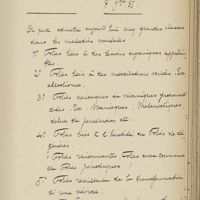 On peut admettre aujourd'hui cinq grandes classes
dans les maladies mentales
1° Folies liées à des lésions organiques appréciables
2° Folies liées à des intoxications variées
alcoolisme.
3° Folies
Maniaques, Mélancoliques
délire de persécution etc
4° Folies liées à l'hérédité ou Folies de dé
générés.
Folies raisonnantes Folies avec conscience
et Folies périodiques
5° Folies résultant de la transformation
d'une névrose